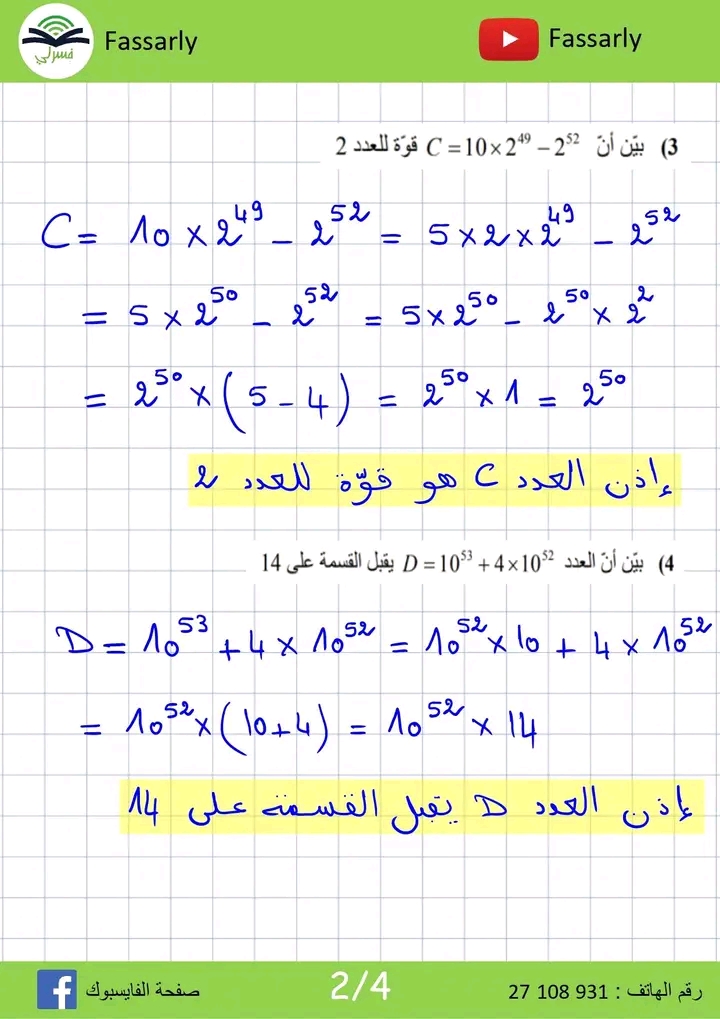 فسرلي
Fassarly
Fassarly
3) بيّن أنّ C = 10 × 2⁴⁹ – 2⁵² قوّة للعدد 2
C = 10 × 2⁴⁹ – 2⁵² = 5 × 2 × 2⁴⁹ – 2⁵²
= 5 × 2⁵⁰ – 2⁵² = 5 × 2⁵⁰ – 2⁵⁰ × 2²
= 2⁵⁰ × (5 – 4) = 2⁵⁰ × 1 = 2⁵⁰
إذن العدد C هو قوّة للعدد 2
4) بيّن أنّ العدد D = 10⁵³ + 4 × 10⁵² يقبل القسمة على 14
D = 10⁵³ + 4 × 10⁵² = 10⁵² × 10 + 4 × 10⁵²
= 10⁵² × (10 + 4) = 10⁵² × 14
إذن العدد D يقبل القسمة على 14
رقم الهاتف : 931 108 27
2/4
صفحة الفايسبوك